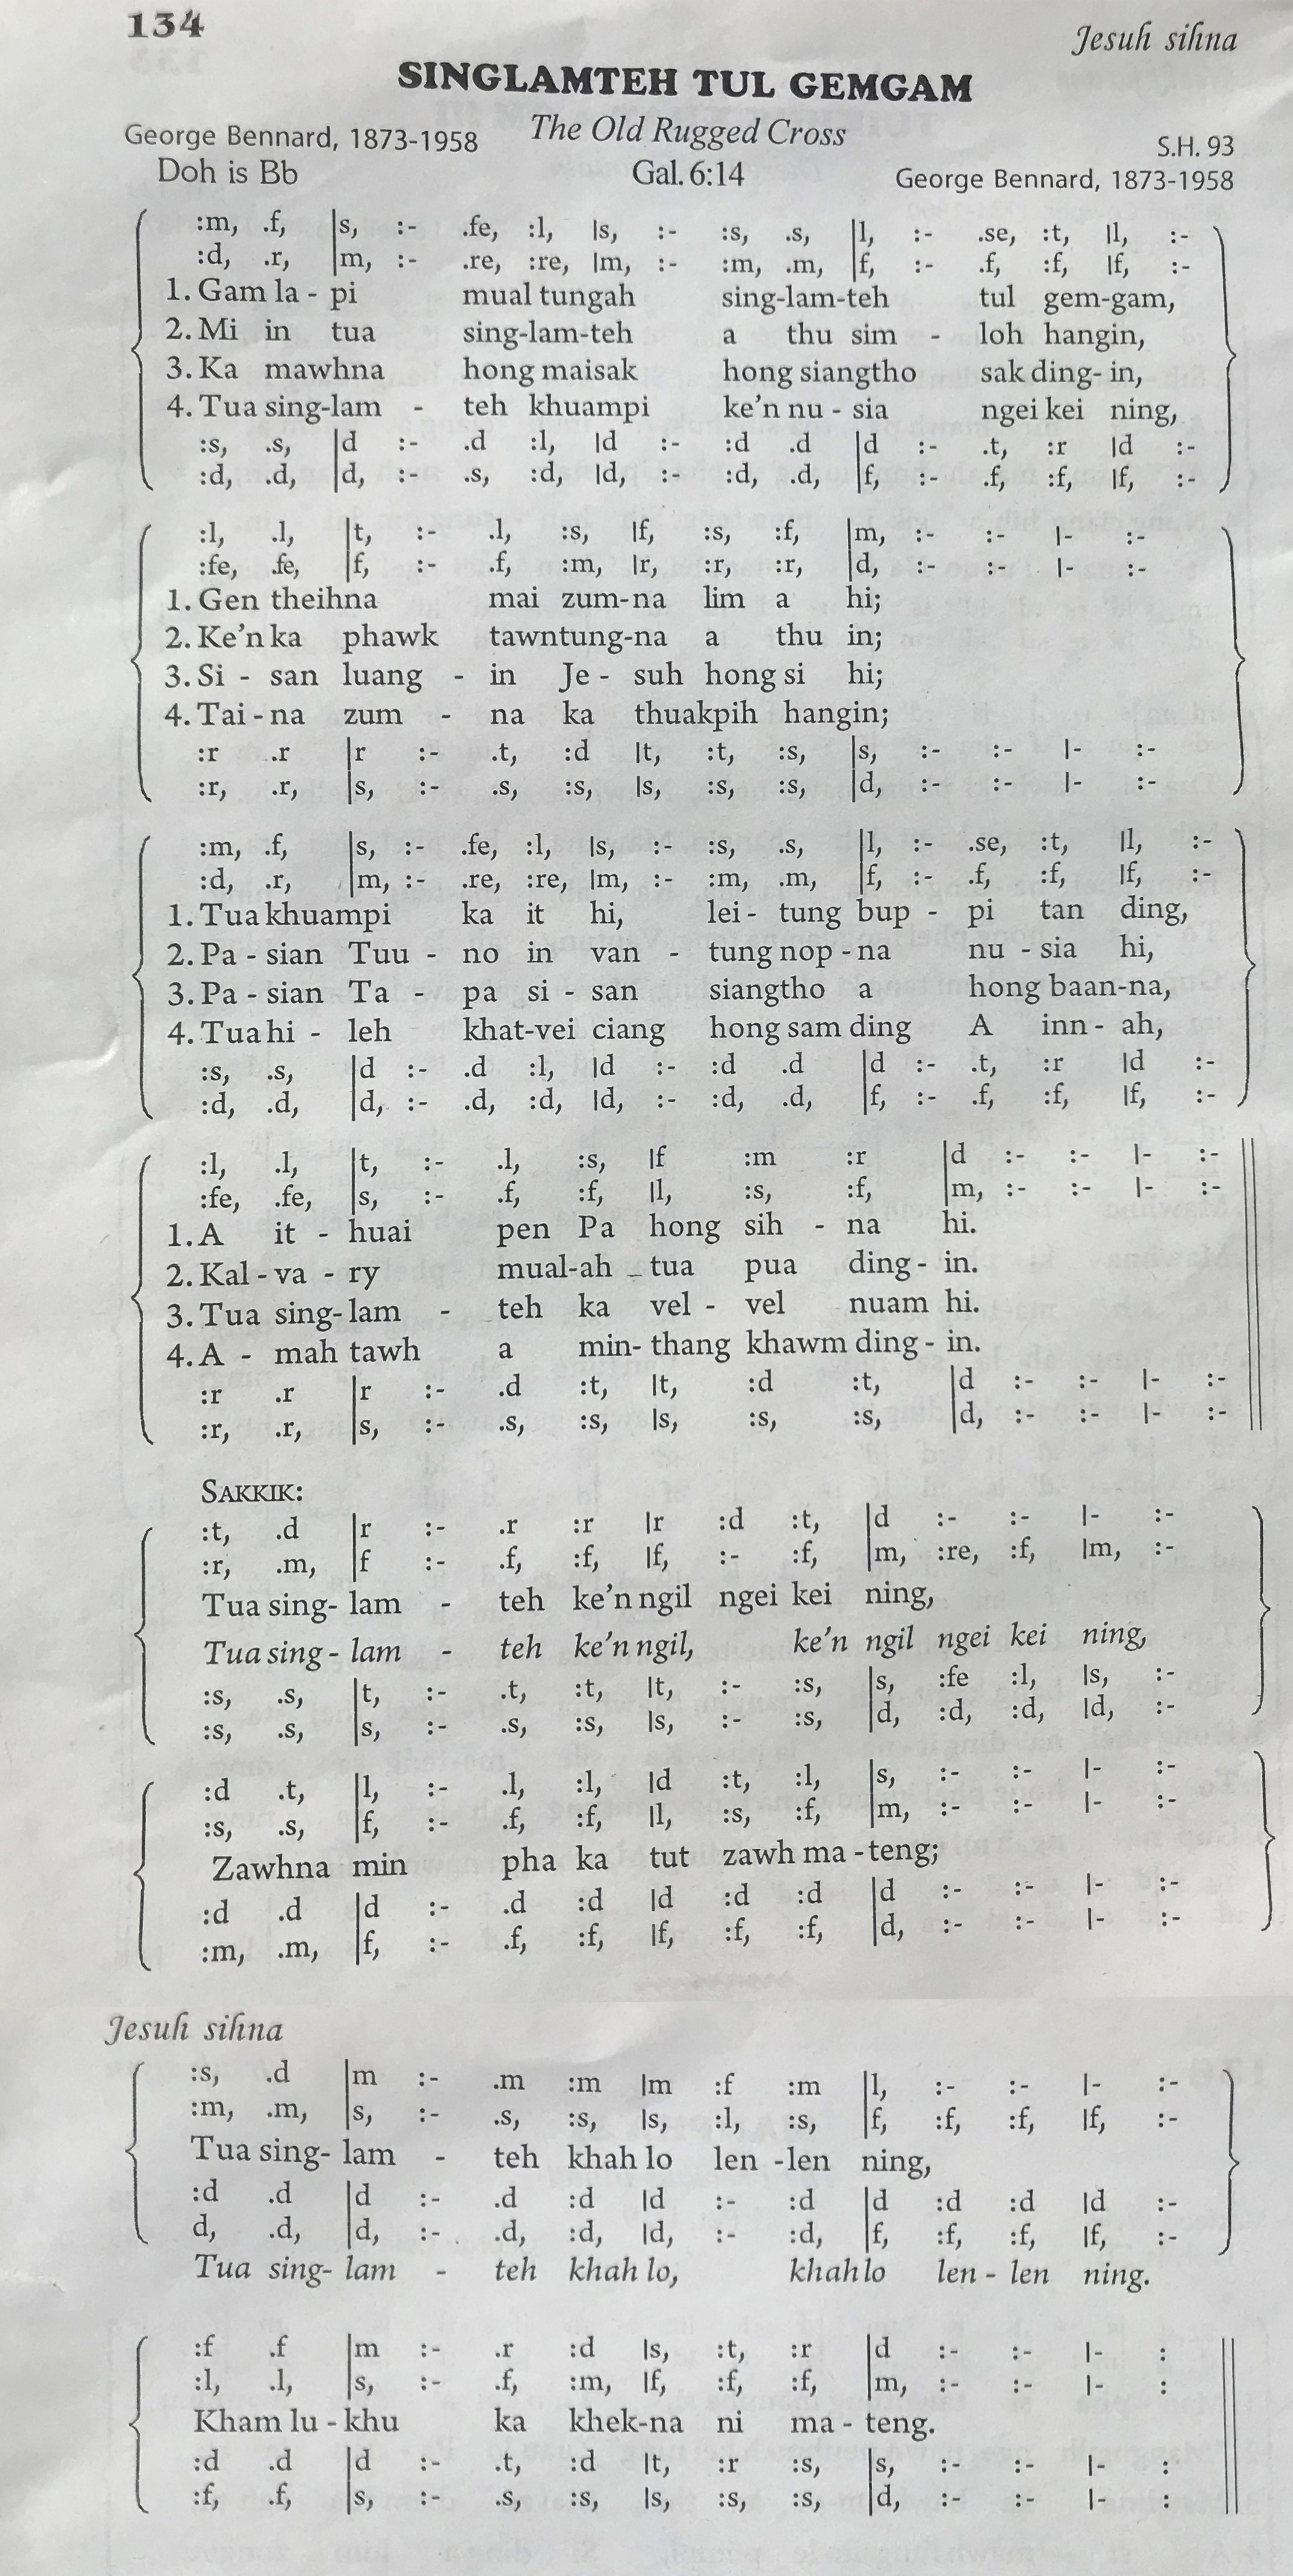 134
Jesuh sihna
SINGLAMTEH TUL GEMGAM
George Bennard, 1873-1958 The Old Rugged Cross S.H. 93
Doh is Bb Gal. 6:14 George Bennard, 1873-1958
:m, .f, |s, :- .fe, :l, |s, :- :s, .s, |l, :- .se, :t, |l, :-
:d, .r, |m, :- .re, :re, |m, :- :m, .m, |f, :- .f, :f, |f, :-
1. Gam la - pi mual tungah sing-lam-teh tul gem-gam,
2. Mi in tua sing-lam-teh a thu sim - loh hangin,
3. Ka mawhna hong maisak hong siangtho sak ding- in,
4. Tua sing-lam - teh khuampi ke'n nu - sia ngei kei ning,
:s, .s, |d :- .d :l, |d :- :d .d |d :- .t, :r |d :-
:d, .d, |d, :- .s, :d, |d, :- :d, .d, |f, :- .f, :f, |f, :-
:l, .l, |t, :- .l, :s, |f, :s, :f, |m, :- :- |- :-
:fe, .fe, |f, :- .f, :m, |r, :r, :r, |d, :- :- |- :-
1. Gen theihna mai zum-na lim a hi;
2. Ke'n ka phawk tawntung-na a thu in;
3. Si - san luang - in Je - suh hong si hi;
4. Tai - na zum - na ka thuakpih hangin;
:r .r |r :- .t, :d |t, :t, :s, |s, :- :- |- :-
:r, .r, |s, :- .s, :s, |s, :s, :s, |d, :- :- |- :-
:m, .f, |s, :- .fe, :l, |s, :- :s, .s, |l, :- .se, :t, |l, :-
:d, .r, |m, :- .re, :re, |m, :- :m, .m, |f, :- .f, :f, |f, :-
1. Tua khuampi ka it hi, lei - tung bup - pi tan ding,
2. Pa - sian Tuu - no in van - tung nop - na nu - sia hi,
3. Pa - sian Ta - pa si - san siangtho a hong baan-na,
4. Tua hi - leh khat-vei ciang hong sam ding A inn - ah,
:s, .s, |d :- .d :l, |d :- :d .d |d :- .t, :r |d :-
:d, .d, |d, :- .d, :d, |d, :- :d, .d, |f, :- .f, :f, |f, :-
:l, .l, |t, :- .l, :s, |f :m :r |d :- :- |- :-
:fe, .fe, |s, :- .f, :f, |l, :s, :f, |m, :- :- |- :-
1. A it - huai pen Pa hong sih - na hi.
2. Kal - va - ry mual-ah - tua pua ding - in.
3. Tua sing- lam - teh ka vel - vel nuam hi.
4. A - mah tawh a min- thang khawm ding - in.
:r .r |r :- .d :t, |t, :d :t, |d :- :- |- :-
:r, .r, |s, :- .s, :s, |s, :s, :s, |d, :- :- |- :-
SAKKIK:
:t, .d |r :- .r :r |r :d :t, |d :- :- |- :-
:r, .m, |f :- .f, :f, |f, :- :f, |m, :re, :f, |m, :-
Tua sing- lam - teh ke'n ngil ngei kei ning,
Tua sing - lam - teh ke'n ngil, ke'n ngil ngei kei ning,
:s, .s, |t, :- .t, :t, |t, :- :s, |s, :fe :l, |s, :-
:s, .s, |s, :- .s, :s, |s, :- :s, |d, :d, :d, |d, :-
:d .t, |l, :- .l, :l, |d :t, :l, |s, :- :- |- :-
:s, .s, |f, :- .f, :f, |l, :s, :f, |m, :- :- |- :-
Zawhna min pha ka tut zawh ma - teng;
:d .d |d :- .d :d |d :d :d |d :- :- |- :-
:m, .m, |f, :- .f, :f, |f, :f, :f, |d, :- :- |- :-
Jesuh sihna
:s, .d |m :- .m :m |m :f :m |l, :- :- |- :-
:m, .m, |s, :- .s, :s, |s, :l, :s, |f, :f, :f, |f, :-
Tua sing- lam - teh khah lo len -len ning,
:d .d |d :- .d :d |d :- :d |d :d :d |d :-
d, .d, |d, :- .d, :d, |d, :- :d, |f, :f, :f, |f, :-
Tua sing- lam - teh khah lo, khah lo len - len ning.
:f .f |m :- .r :d |s, :t, :r |d :- :- |- :
:l, .l, |s, :- .f, :m, |f, :f, :f, |m, :- :- |- :
Kham lu - khu ka khek-na ni ma - teng.
:d .d |d :- .t, :d |t, :r :s, |s, :- :- |- :
:f, .f, |s, :- .s, :s, |s, :s, :s, |d, :- :- |- :